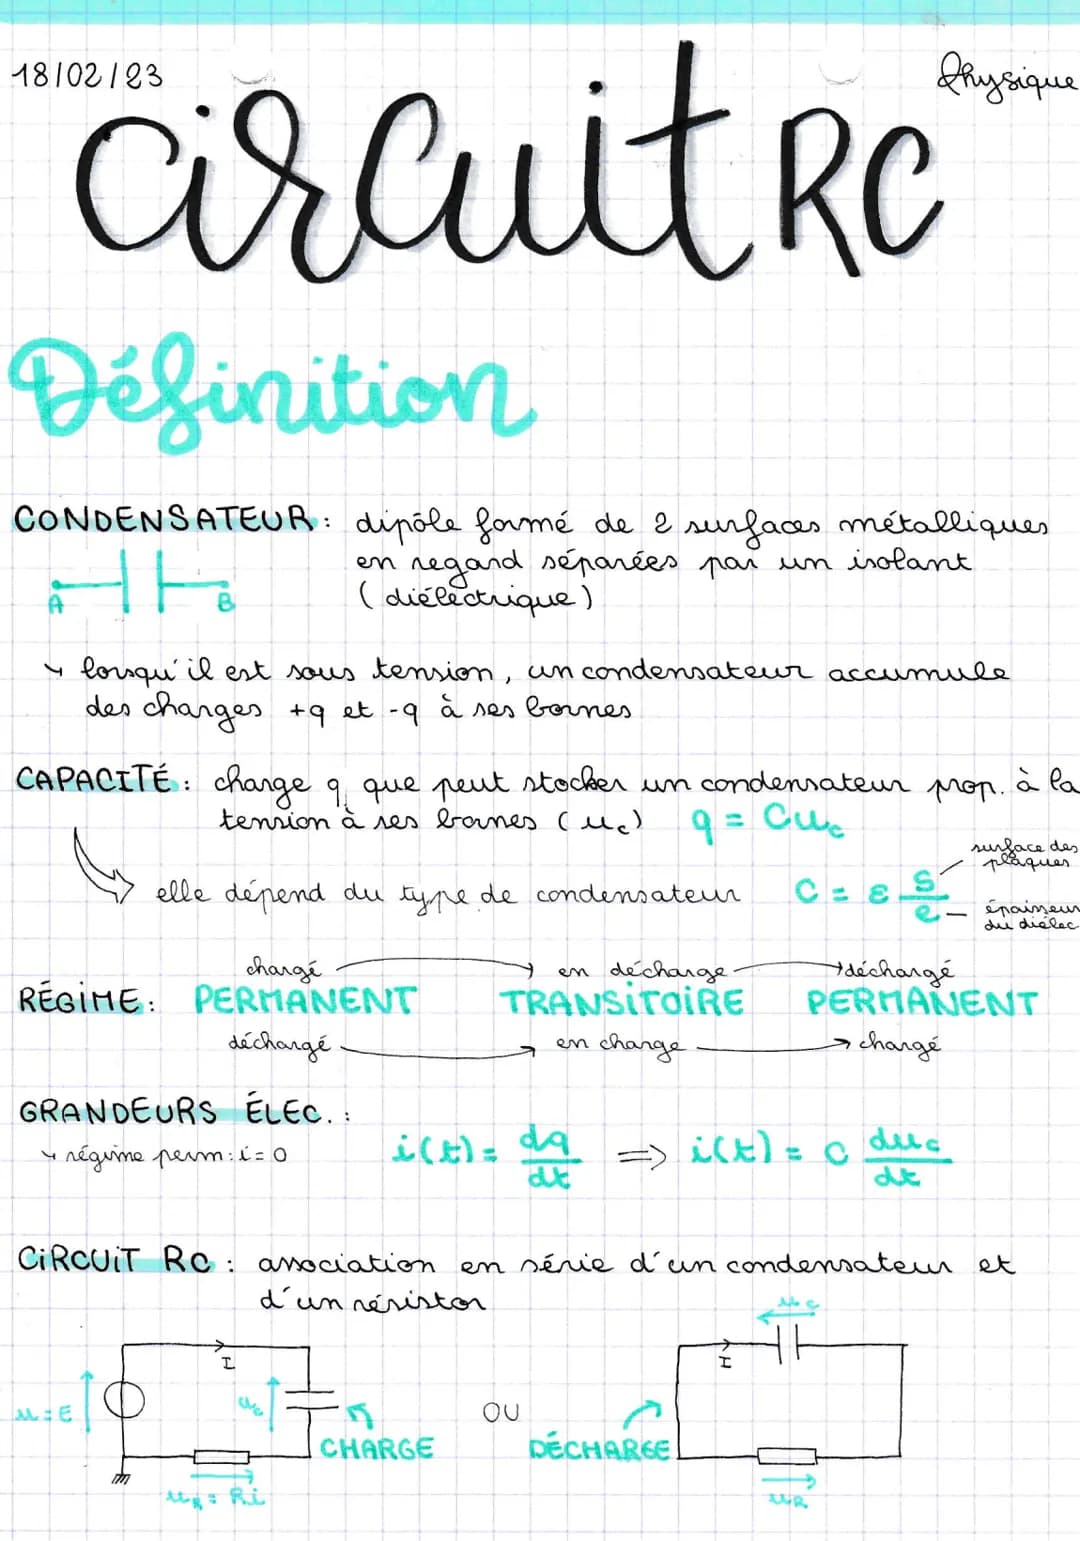 18/02/23
Physique
Circuit RC
Définition
CONDENSATEUR : dipôle formé de 2 surfaces métalliques
en regard séparées par un isolant
(diélectrique)
A B
↳ lorsqu'il est sous tension, un condensateur accumule
des charges +q et -q à ses bornes
CAPACITÉ : charge q que peut stocker un condensateur prop. à la
tension à ses bornes (uc) q = Cuc
surface des
plaques
elle dépend du type de condensateur C = ε S/e
épaisseur
du diélec
chargé → en décharge → déchargé
RÉGIME : PERMANENT TRANSITOIRE PERMANENT
déchargé → en charge → chargé
GRANDEURS ÉLEC. :
↳ régime perm : i = 0 i(t) = dq/dt ⇒ i(t) = C duc/dt
CIRCUIT RC : association en série d'un condensateur et
d'un résistor
uc
I I
u = E uc OU
CHARGE DÉCHARGE
uR = Ri uR